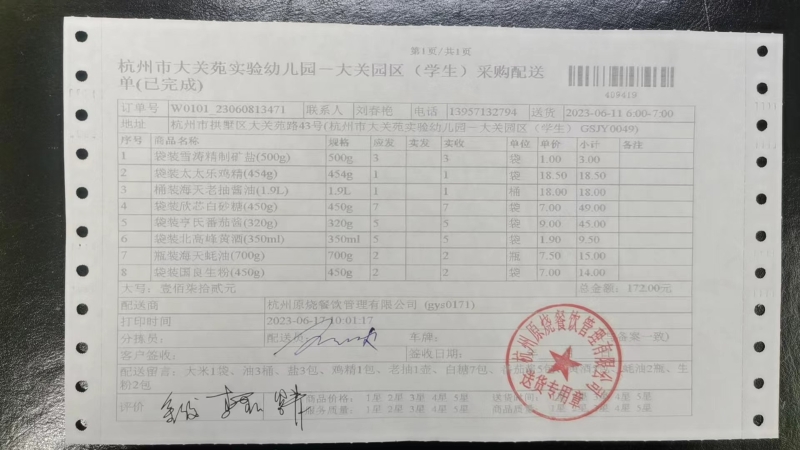 第1页/共1页
杭州市大关苑实验幼儿园－大关园区（学生）采购配送
单(已完成)
409419
订单号 W0101_23060813471 联系人 刘春艳 电话 13957132794 送货 2023-06-11 6:00-7:00
地址 杭州市拱墅区大关苑路43号(杭州市大关苑实验幼儿园－大关园区（学生）GSJY0049)
序号 商品名称 规格 应发 实发 实收 单位 单价 小计 备注
1 袋装雪涛精制矿盐(500g) 500g 3 3 袋 1.00 3.00
2 袋装太太乐鸡精(454g) 454g 1 1 袋 18.50 18.50
3 桶装海天老抽酱油(1.9L) 1.9L 1 1 桶 18.00 18.00
4 袋装欣芯白砂糖(450g) 450g 7 7 袋 7.00 49.00
5 袋装亨氏番茄酱(320g) 320g 5 5 袋 9.00 45.00
6 袋装北高峰黄酒(350ml) 350ml 5 5 袋 1.90 9.50
7 瓶装海天蚝油(700g) 700g 2 2 瓶 7.50 15.00
8 袋装国良生粉(450g) 450g 2 2 袋 7.00 14.00
大写：壹佰柒拾贰元 总金额：172.00元
配送商 杭州原烧餐饮管理有限公司 (gys0171)
打印时间 2023-06-17 10:01:17
分拣员： 配送员 车牌： 备案一致)
客户签收： 签收日期：
配送留言：大米1袋、油3桶、盐3包、鸡精1包、老抽1壶、白糖7包、番茄酱5 蚝油2瓶、生
粉2包
评价 商品价格： 1星 2星 3星 4星 5星 送货时间： 4星 5星
服务质量： 1星 2星 3星 4星 5星 商品质量： 4星 5星
杭州原烧餐饮管理有限公司
送货专用章